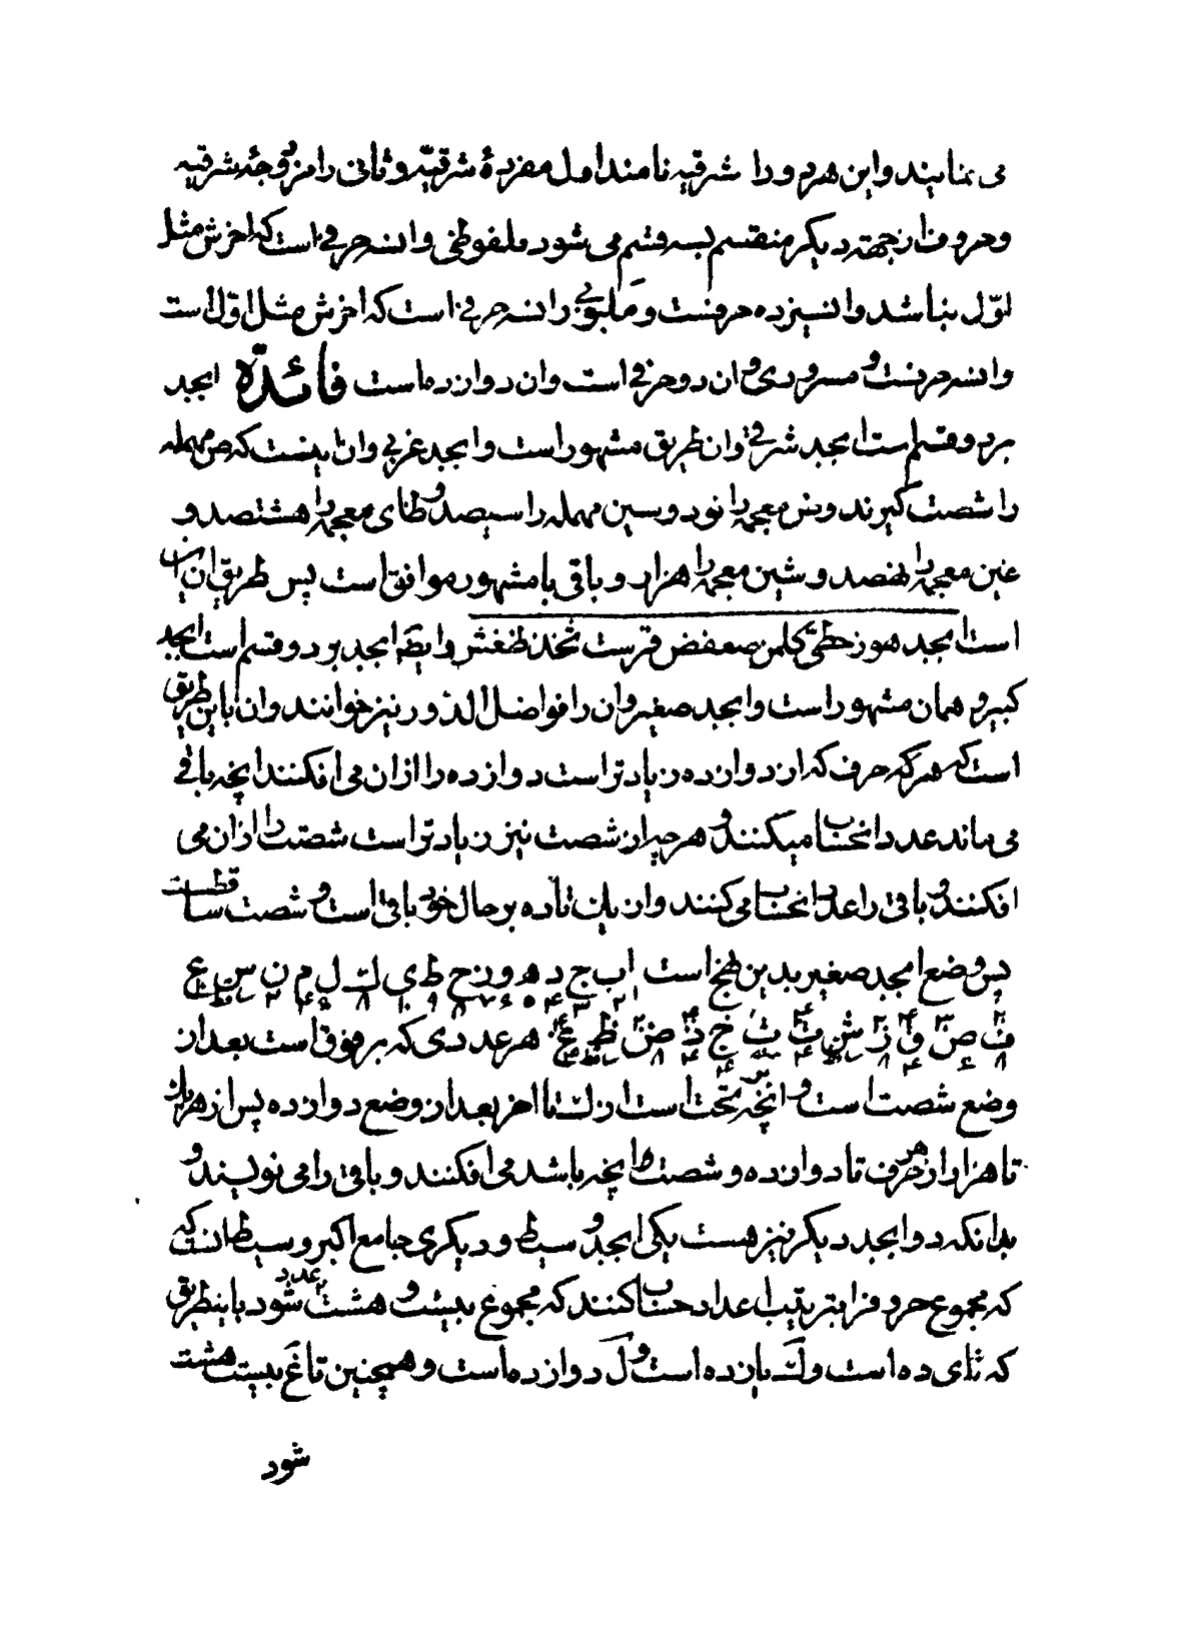 می نمایند و این هر دو را شرقیه نامند اول مفردهٔ شرقیّه و ثانی را مزوجهٔ شرقیه
و حروف از جهته دیگر منقسم بسه قسم می شود ملفوظی و ان سه حرفی است که اخرش مثل
اوّل نباشد و ان سیزده حرفست و ملبوبی و ان سه حرفی است که اخرش مثل اوّل است
و ان سه حرفست و مسروری و ان دو حرفی است و ان دوازده است فائدّه ابجد
بر دو قسم است ابجد شرقی و ان طریق مشهور است و ابجد غربی و ان اینست که ص مهمله
را شصت گیرند و ض معجمه را نود و سین مهمله را سیصد و ظای معجمه را هشتصد و
غین معجمه را نهصد و شین معجمه را هزار و باقی با مشهور موافق است پس طریق ان این
است ابجد هوز حطی کلمن صعفض قرست ثخذ ظغش و ایضا ابجد بر دو قسم است ابجد
کبیر و همان مشهور است و ابجد صغیر و ان را فواضل الدور نیز خوانند و ان باین طریق
است که هر که حرف که از دوازده زیادتر است دوازده را ازان می افکنند انچه باقی
می ماند عدد انحساب میکنند و هر چه از شصت نیز زیادتر است شصت را ازان می
افکنند و باقی را عدد انحساب می کنند و ان یک تا ده بر حال خود باقی است و شصت ساقطست
پس وضع ابجد صغیر بدین نهج است ا ب ج د ه و ز ح ط ی ک ل م ن س ع
ف ص ق ر ش ت ث خ ذ ض ظ غ هر عددی که بر فوق است بعد از
وضع شصت است و انچه بر تحت است از ک تا اخر بعد از وضع دوازده پس از هر یک
تا هزار از هر حرف تا دوازده و شصت را انچه باشد می افکنند و باقی را می نویسند و
بدانکه دو ابجد دیگر نیز هست یکی ابجد وسیط و دیگری جامع اکبر وسیط ان که
که مجموع حروفرا بترتیب اعداد حساب کنند که مجموع بیست و هشت عدد شود باینطریق
که تا ی ده است و ک یازده است و ل دوازده است و همچنین تا غ بیست هشت
شود